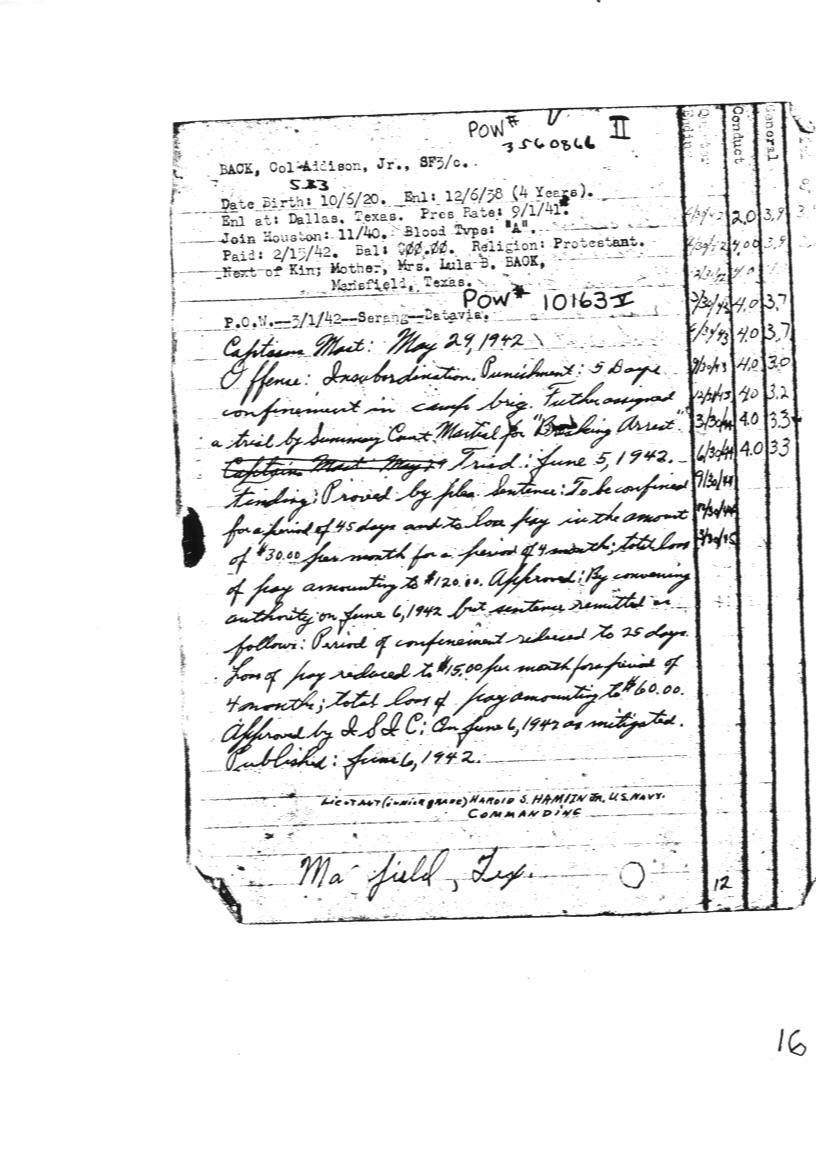 POW# V II
3560866
BACK, Col Addison, Jr., SF3/c.
533
Date Birth: 10/6/20. Enl: 12/6/38 (4 Years).
Enl at: Dallas, Texas. Pres Rate: 9/1/41.
Join Houston: 11/40. Blood Type: "A".
Paid: 2/15/42. Bal: 00.00. Religion: Protestant.
Next of Kin; Mother, Mrs. Lula B. BACK,
Mansfield, Texas.
POW# 10163 V
P.O.W.--3/1/42--Serang--Batavia.
Captains Mast: May 29, 1942
Offense: Insubordination. Punishment: 5 Days
confinement in camp brig. Futher assigned
a trial by Summary Court Martial for "Breaking Arrest".
Captains Mast: May 29 Tried: June 5, 1942.
Finding: Proved by plea. Sentence: To be confined
for a period of 45 days and to lose pay in the amount
of $30.00 per month for a period of 4 month; total loss
of pay amounting to $120.00. Approved: By convening
authority on June 6, 1942 but sentence remitted as
follows: Period of confinement reduced to 25 days.
Loss of pay reduced to $15.00 per month for a period of
4 month; total loss of pay amounting to $60.00.
Approved by I S I C: On June 6, 1942 as mitigated.
Published: June 6, 1942.
(JUNIOR GRADE) HAROLD S. HAMLIN JR. U.S. NAVY.
COMMANDING
Ma field, Tex.
Quarter Ending Conduct General
2.0 3.9
4.00 3.9
4.0
3/30/43 4.0 3.7
6/30/43 4.0 3.7
9/30/43 4.0 3.0
12/31/43 4.0 3.2
3/30/44 4.0 3.3
6/30/44 4.0 3.3
9/30/44
12/30/44
3/30/45
12
16